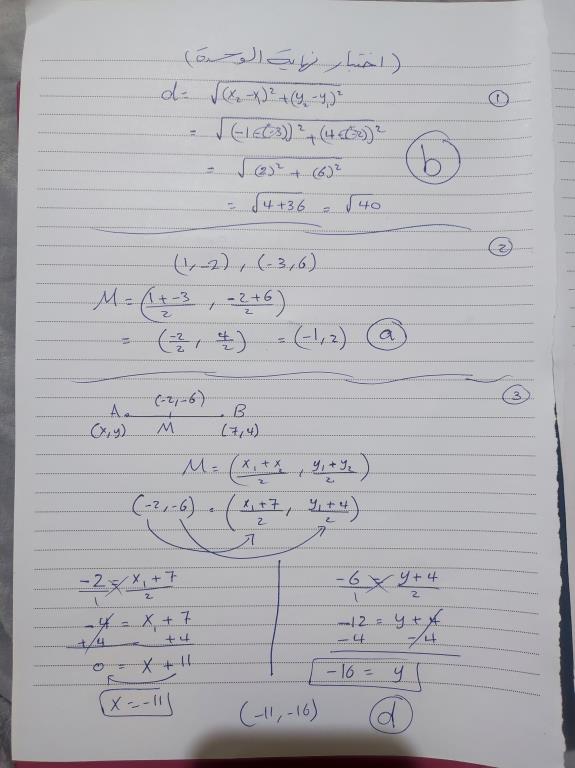 (اختبار نهاية الوحدة)
d = √(x₂ - x)² + (y₂ - y₁)² ①
= √(-1 - (-3))² + (4 - (-2))²
= √(2)² + (6)² ⓑ
= √4+36 = √40
②
(1, -2) , (-3, 6)
M = (1 + -3 / 2 , -2 + 6 / 2)
= (-2/2 , 4/2) = (-1, 2) ⓐ
③
(-2, -6)
A B
(x, y) M (7, 4)
M = (x₁ + x₂ / 2 , y₁ + y₂ / 2)
(-2, -6) = (x₁ + 7 / 2 , y₁ + 4 / 2)
-2/1 = x₁ + 7 / 2
-4 = x₁ + 7
+4 +4
0 = x + 11
x = -11
-6/1 = y + 4 / 2
-12 = y + 4
-4 -4
-16 = y
(-11, -16) ⓓ